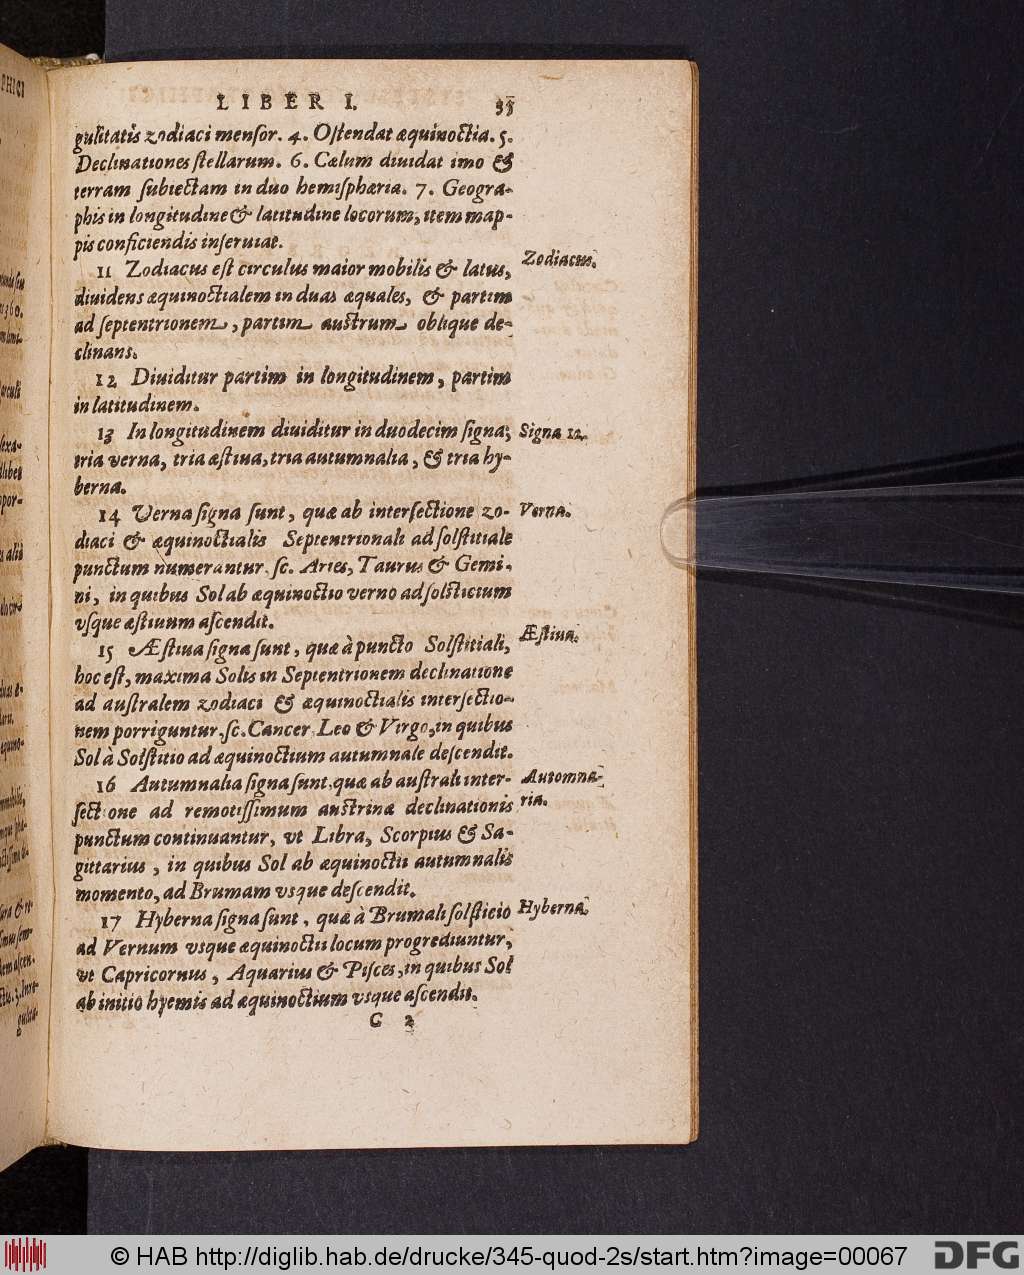 LIBER I. 35
gulitatis zodiaci mensor. 4. Ostendat æquinoctia. 5.
Declinationes stellarum. 6. Cælum diuidat imo &
terram subiectam in duo hemisphæria. 7. Geogra-
phis in longitudine & latitudine locorum, item map-
pis conficiendis inseruiat.
11 Zodiacus est circulus maior mobilis & latus,
Zodiacus.
diuidens æquinoctialem in duas æquales, & partim
ad septentrionem, partim austrum oblique de-
clinans.
12 Diuiditur partim in longitudinem, partim
in latitudinem.
13 In longitudinem diuiditur in duodecim signa;
Signa 12.
tria verna, tria æstiua, tria autumnalia, & tria hy-
berna.
14 Verna signa sunt, quæ ab intersectione zo-
Verna.
diaci & æquinoctialis Septentrionali ad solstitiale
punctum numerantur. sc. Aries, Taurus & Gemi-
ni, in quibus Sol ab æquinoctio verno ad solsticium
vsque æstiuum ascendit.
15 Æstiua signa sunt, quæ à puncto Solstitiali,
Æstiua.
hoc est, maxima Solis in Septentrionem declinatione
ad australem zodiaci & æquinoctialis intersectio-
nem porriguntur. sc. Cancer, Leo & Virgo, in quibus
Sol à Solstitio ad æquinoctium autumnale descendit.
16 Autumnalia signa sunt, quæ ab australi inter-
Automna-
ria.
sectione ad remotissimum austrinæ declinationis
punctum continuantur, vt Libra, Scorpius & Sa-
gittarius, in quibus Sol ab æquinoctii autumnalis
momento, ad Brumam vsque descendit.
17 Hyberna signa sunt, quæ à Brumali solsticio
Hyberna.
ad Vernum vsque æquinoctii locum progrediuntur,
vt Capricornus, Aquarius & Pisces, in quibus Sol
ab initio hyemis ad æquinoctium vsque ascendit.
C 2
© HAB http://diglib.hab.de/drucke/345-quod-2s/start.htm?image=00067
DFG